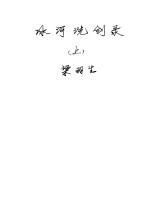 冰河洗剑录
(上)
梁羽生